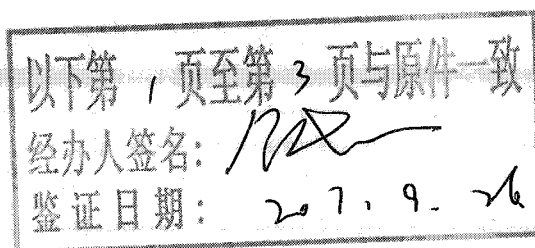 以下第1页至第3页与原件一致
经办人签名:
鉴证日期: 207.9.26